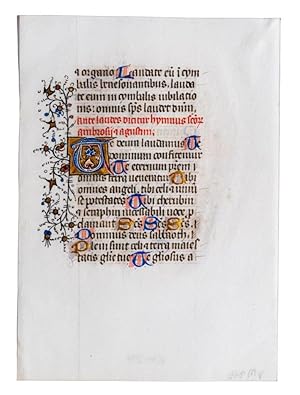 & organo Laudate eū i cym
balis benesonantibus. lauda
te eum in cymbalis iubilacio
nis : omnis sp̄s laudet dnm̄.
ante laudes dicitur hymnus scōꝝ
ambrosij & agustini.
Te deum laudamus Te
dominum confitemur
Te eternum p̄em
omnis terra veneratur Tibi
omnes angeli. tibi celi & uniu
se potestates Tibi cherubin
& seraphin incessabili voce p
clamant Scs̄ Scs̄ Scs̄
Dominus deus sabaoth.
Pleni sunt celi & terra maies
tatis glīe tue Te gliosus a